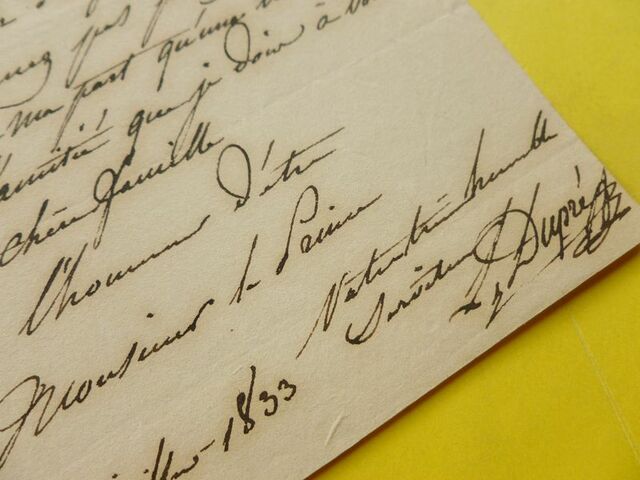 pas
ma part qu'une
l'amitié, que je dois à vo
chère famille
l'honneur d'être
Monsieur le Prince
Votre très humble
Serviteur
Dupré
1833